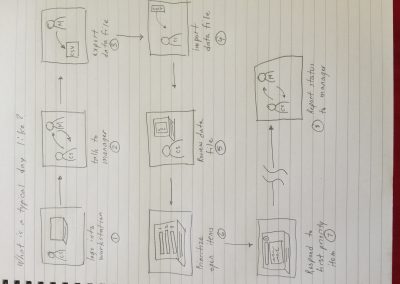 What is a typical day like?
logs into
workstation
①
talk to
manager
②
M
CS
export
data file
③
M
CSV
import
data file
④
Review data
file
⑤
CS
Prioritize
open items
⑥
Respond to
first priority
item
⑦
Report status
to manager
⑧
M
CS